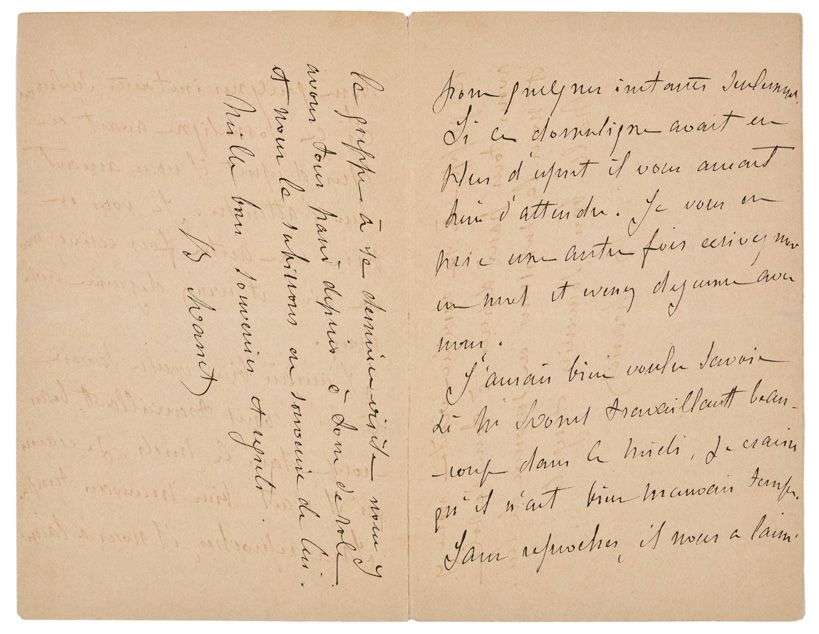 pour quelques instants seulement.
Si ce domestique avait eu
plus d'esprit il vous aurait
d'attendre. Je vous en
prie une autre fois ecrivez moi
un mot et venez dejeuner avec
nous.
J'aurais bien voulu savoir
si Mr Monet travaillait beau-
-coup dans le midi, je crains
qu'il n'ait bien mauvais temps.
Sans reproches, il nous a laissé
la grippe à sa dernière visite nous y
avons tous passé depuis à tour de role
et nous la en souvenir de lui.
Mille bons souvenirs et regrets.
B Manet